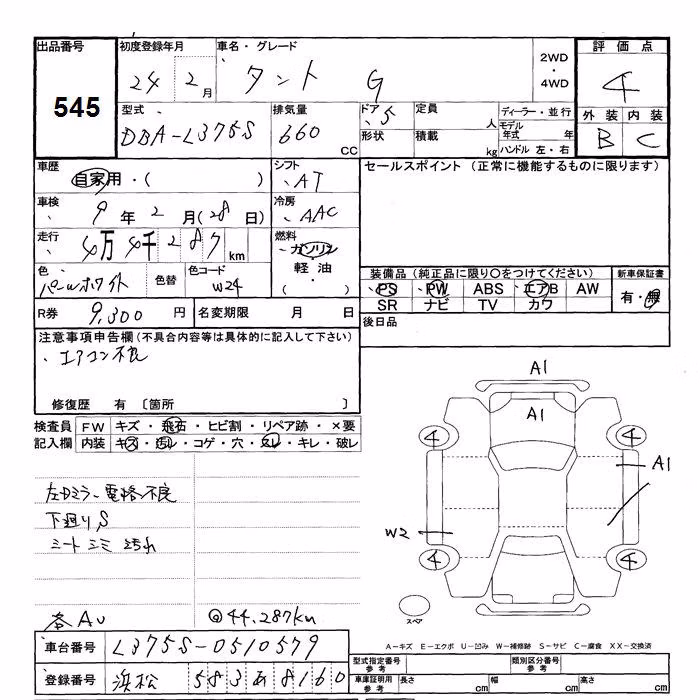 出品番号
545
初度登録年月
24 2月
車名・グレード
タント G
2WD
・
4WD
評価点
4
外装 内装
B C
型式
DBA-L375S
排気量
660 cc
ドア 5
形状
定員 人
積載 kg
ディーラー・並行
モデル年式 年
ハンドル 左・右
車歴
自家用・( )
シフト
AT
車検
9年2月(28日)
冷房
AAC
走行
4万4千287km
燃料
ガソリン
軽油
( )
色
パールホワイト
色替
色コード
W24
R券 9,300円
名変期限 月 日
セールスポイント (正常に機能するものに限ります)
装備品 (純正品に限り〇をつけてください)
PS PW ABS エアB AW
SR ナビ TV カワ
新車保証書
有・無
後日品
注意事項申告欄(不具合内容等は具体的に記入して下さい)
エアコン不良
修復歴 有 〔箇所 〕
検査員記入欄
FW キズ・飛石・ヒビ割・リペア跡・×要
内装 キズ・汚レ・コゲ・穴・スレ・キレ・破レ
左Dミラー電格不良
下廻りS
シートシミ
各AU
@44,287km
A1
A1
4 4
A1
W2
4 4
スペア
A-キズ E-エクボ U-凹み W-補修跡 S-サビ C-腐食 XX-交換済
車台番号 L375S-0510579
登録番号 浜松 583あ8160
型式指定番号 参考
類別区分番号 参考
車庫証明用 参考
長さ cm 幅 cm 高さ cm